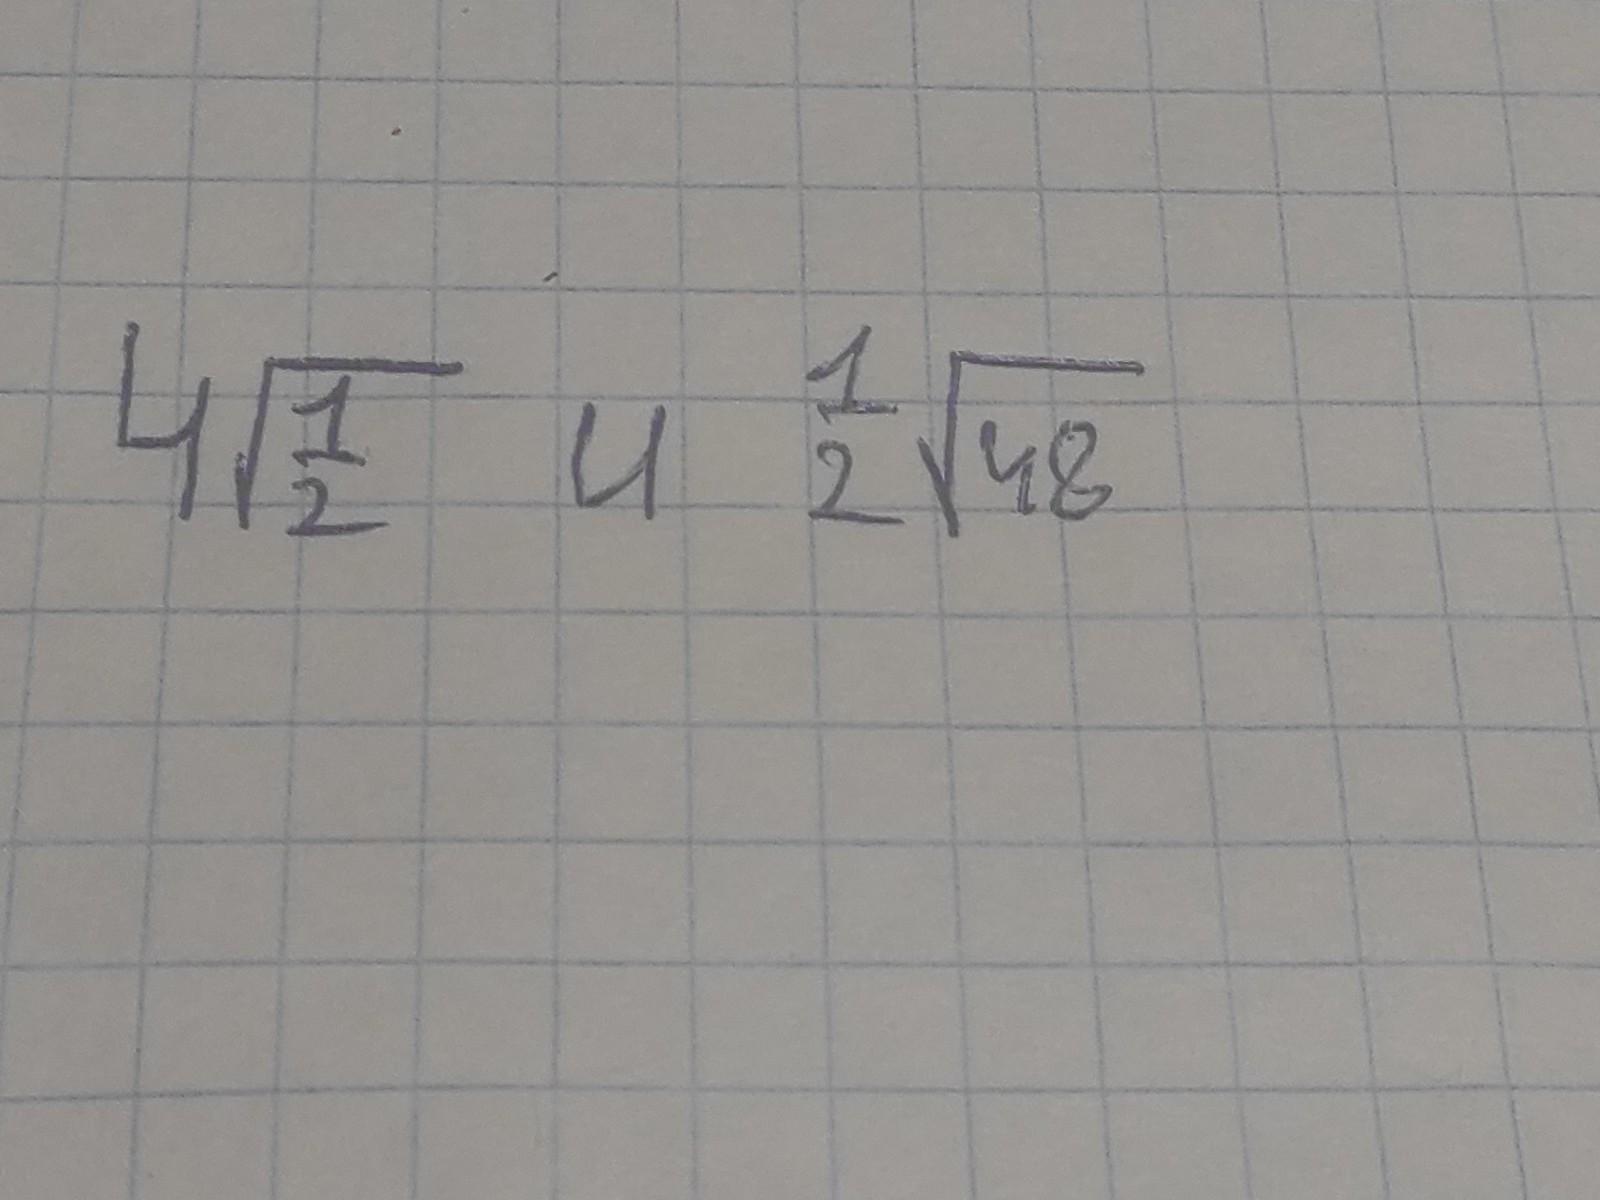 4√(1/2) и 1/2√48